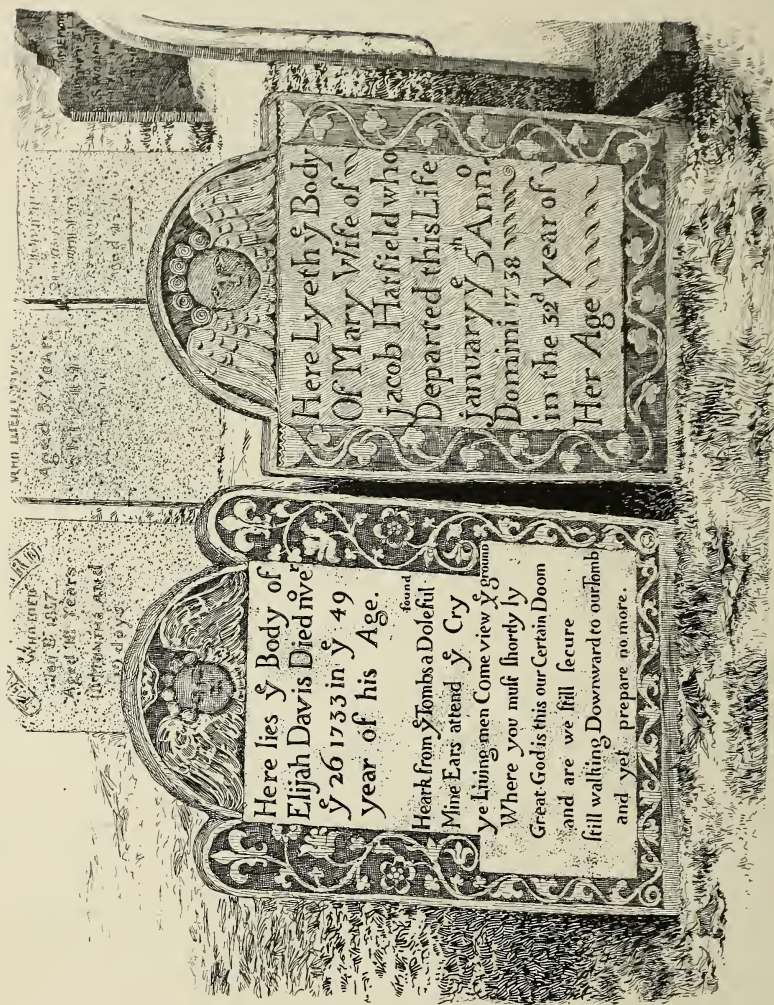 Here lies yͤ Body of
Elijah Davis Died nveʳ
yͤ 26 1733 in yͤ 49
year of his Age.
Heark from yͤ Tombs a Doleful found
Mine Ears attend yͤ Cry
ye Living men Come view yͤ ground
Where you muſt ſhortly ly
Great God is this our Certain Doom
and are we ſtill ſecure
ſtill walking Downward to our Tomb
and yet prepare no more.
Here Lyeth yͤ Body
Of Mary Wife of
jacob Hatfield who
Departed this Life
january yͤ 5ᵗʰ Annᵒ
Domini 1738
in the 32ᵈ year of
Her Age
Aged 37 Years
Aged Years
and
days